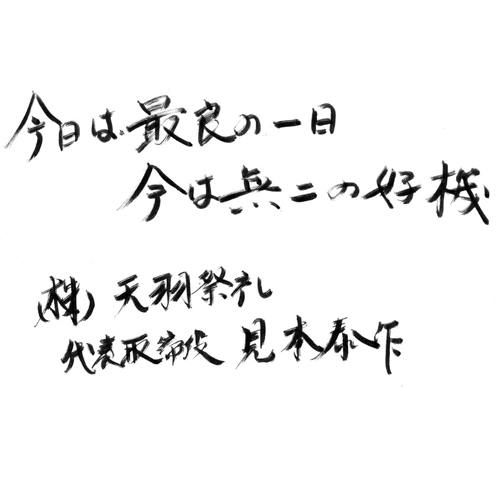 今日は最良の一日
今は兵二の好機
(株)天羽祭礼
代表取締役 見本泰作